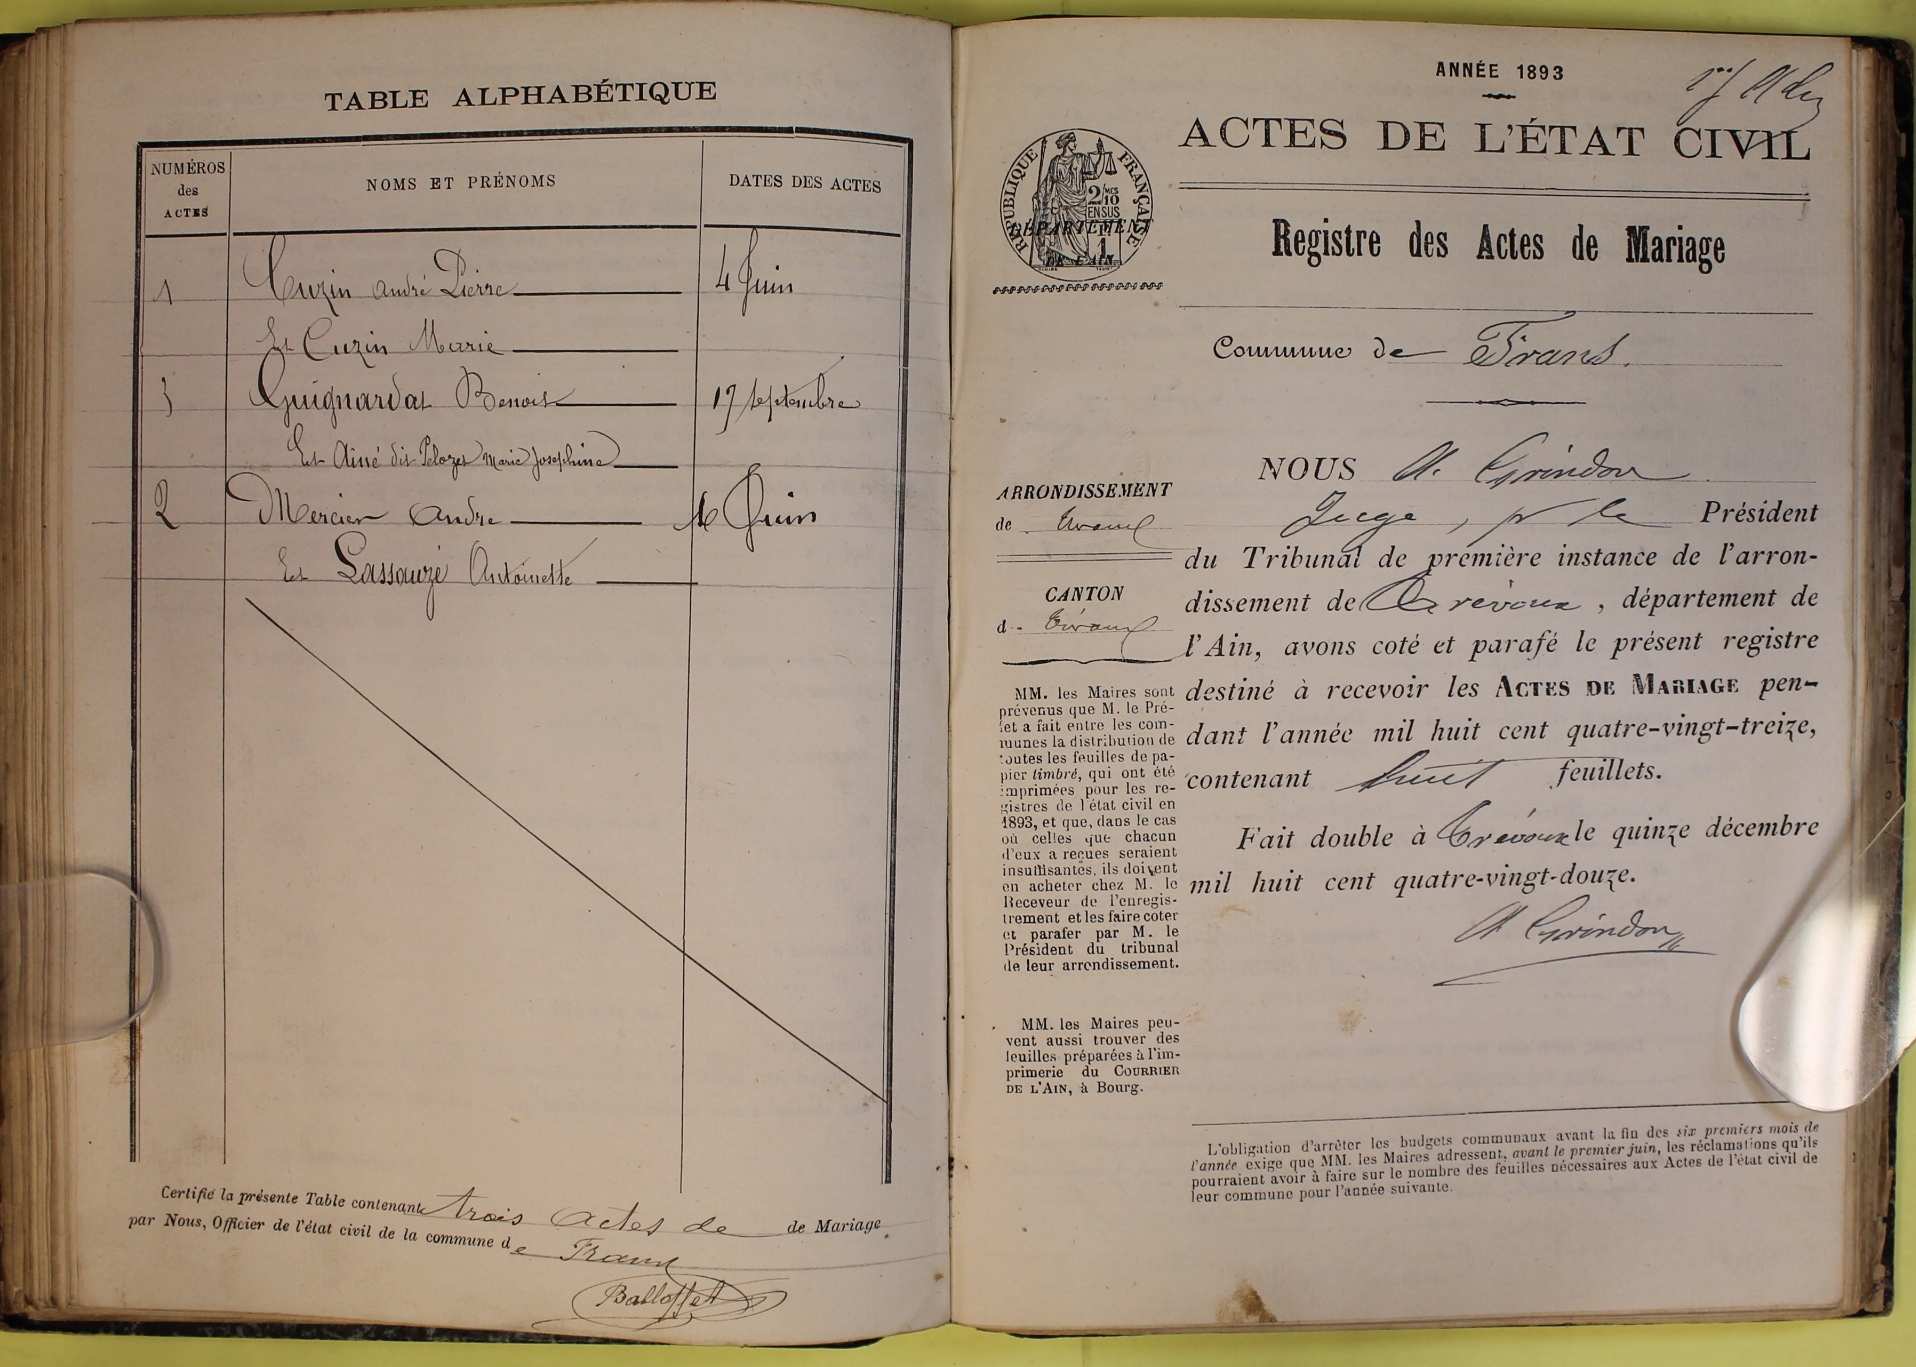 TABLE ALPHABÉTIQUE
NUMÉROS
des
ACTES
NOMS ET PRÉNOMS
DATES DES ACTES
1 Cuzin André Pierre 4 Juin
Et Cuzin Marie
3 Guignardat Benoit 17 septembre
Et Ainé dit Pelozet Marie Josephine
2 Mercier Andre Juin
Et Lassauzé Antoinette
Certifié la présente Table contenant trois actes de de Mariage
par Nous, Officier de l'état civil de la commune de Frans
Balloffet
ANNÉE 1893
ACTES DE L'ÉTAT CIVIL
RÉPUBLIQUE FRANÇAISE
2/10
EN SUS
DÉPARTEMENT
DE L'AIN
Registre des Actes de Mariage
Commune de Frans.
ARRONDISSEMENT
de Trévoux
CANTON
d Trévoux
MM. les Maires sont
prévenus que M. le Pré-
fet a fait entre les com-
munes la distribution de
toutes les feuilles de pa-
pier timbré, qui ont été
imprimées pour les re-
gistres de l'état civil en
1893, et que, dans le cas
où celles que chacun
d'eux a reçues seraient
insuffisantes, ils doivent
en acheter chez M. le
Receveur de l'enregis-
trement et les faire coter
et parafer par M. le
Président du tribunal
de leur arrondissement.
MM. les Maires peu-
vent aussi trouver des
feuilles préparées à l'im-
primerie du COURRIER
DE L'AIN, à Bourg.
NOUS A. Grindon
Juge, pr le Président
du Tribunal de première instance de l'arron-
dissement de Trévoux, département de
l'Ain, avons coté et parafé le présent registre
destiné à recevoir les ACTES DE MARIAGE pen-
dant l'année mil huit cent quatre-vingt-treize,
contenant huit feuillets.
Fait double à Trévoux le quinze décembre
mil huit cent quatre-vingt-douze.
A Grindon
L'obligation d'arrêter les budgets communaux avant la fin des six premiers mois de
l'année exige que MM. les Maires adressent, avant le premier juin, les réclamations qu'ils
pourraient avoir à faire sur le nombre des feuilles nécessaires aux Actes de l'état civil de
leur commune pour l'année suivante.